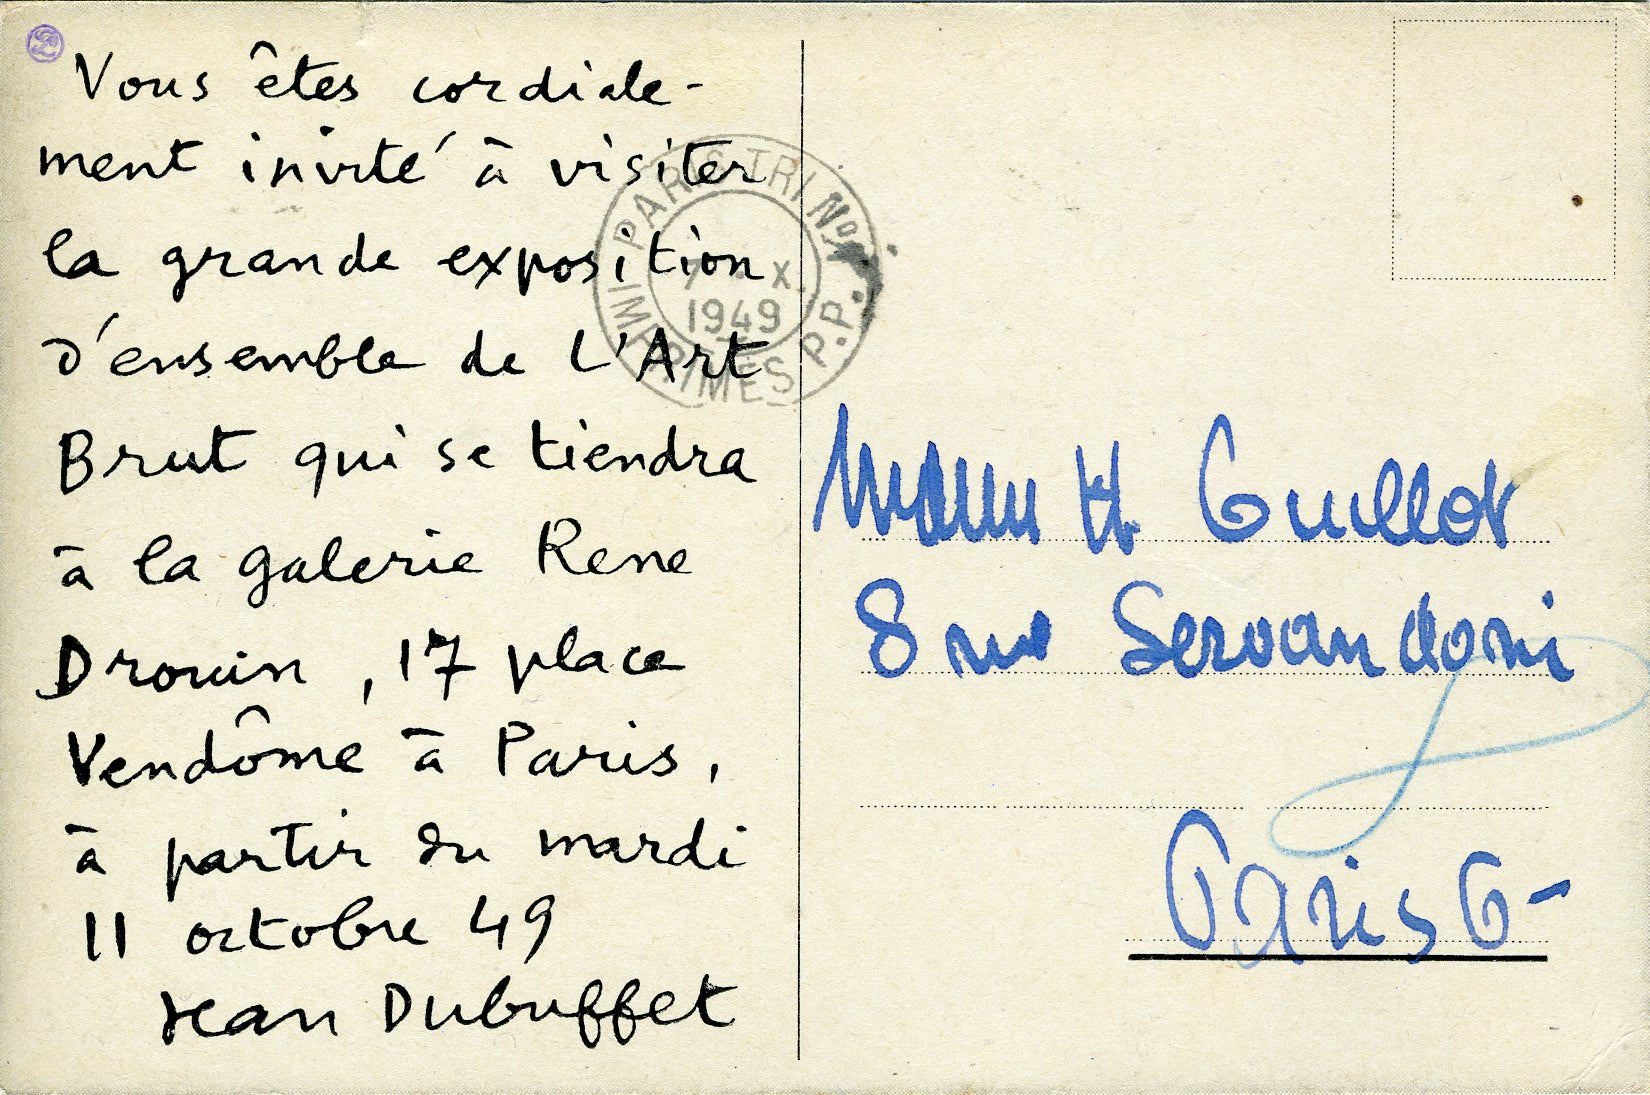 Vous êtes cordiale-
ment invité à visiter
la grande exposition
d'ensemble de L'Art
Brut qui se tiendra
à la galerie Rene
Drouin, 17 place
Vendôme à Paris,
à partir du mardi
11 octobre 49
Jean Dubuffet
PARIS TRI No
7 X
1949
IMPRIMÉS P.P.
H. Guillot
8 rue Servandoni
Paris 6-